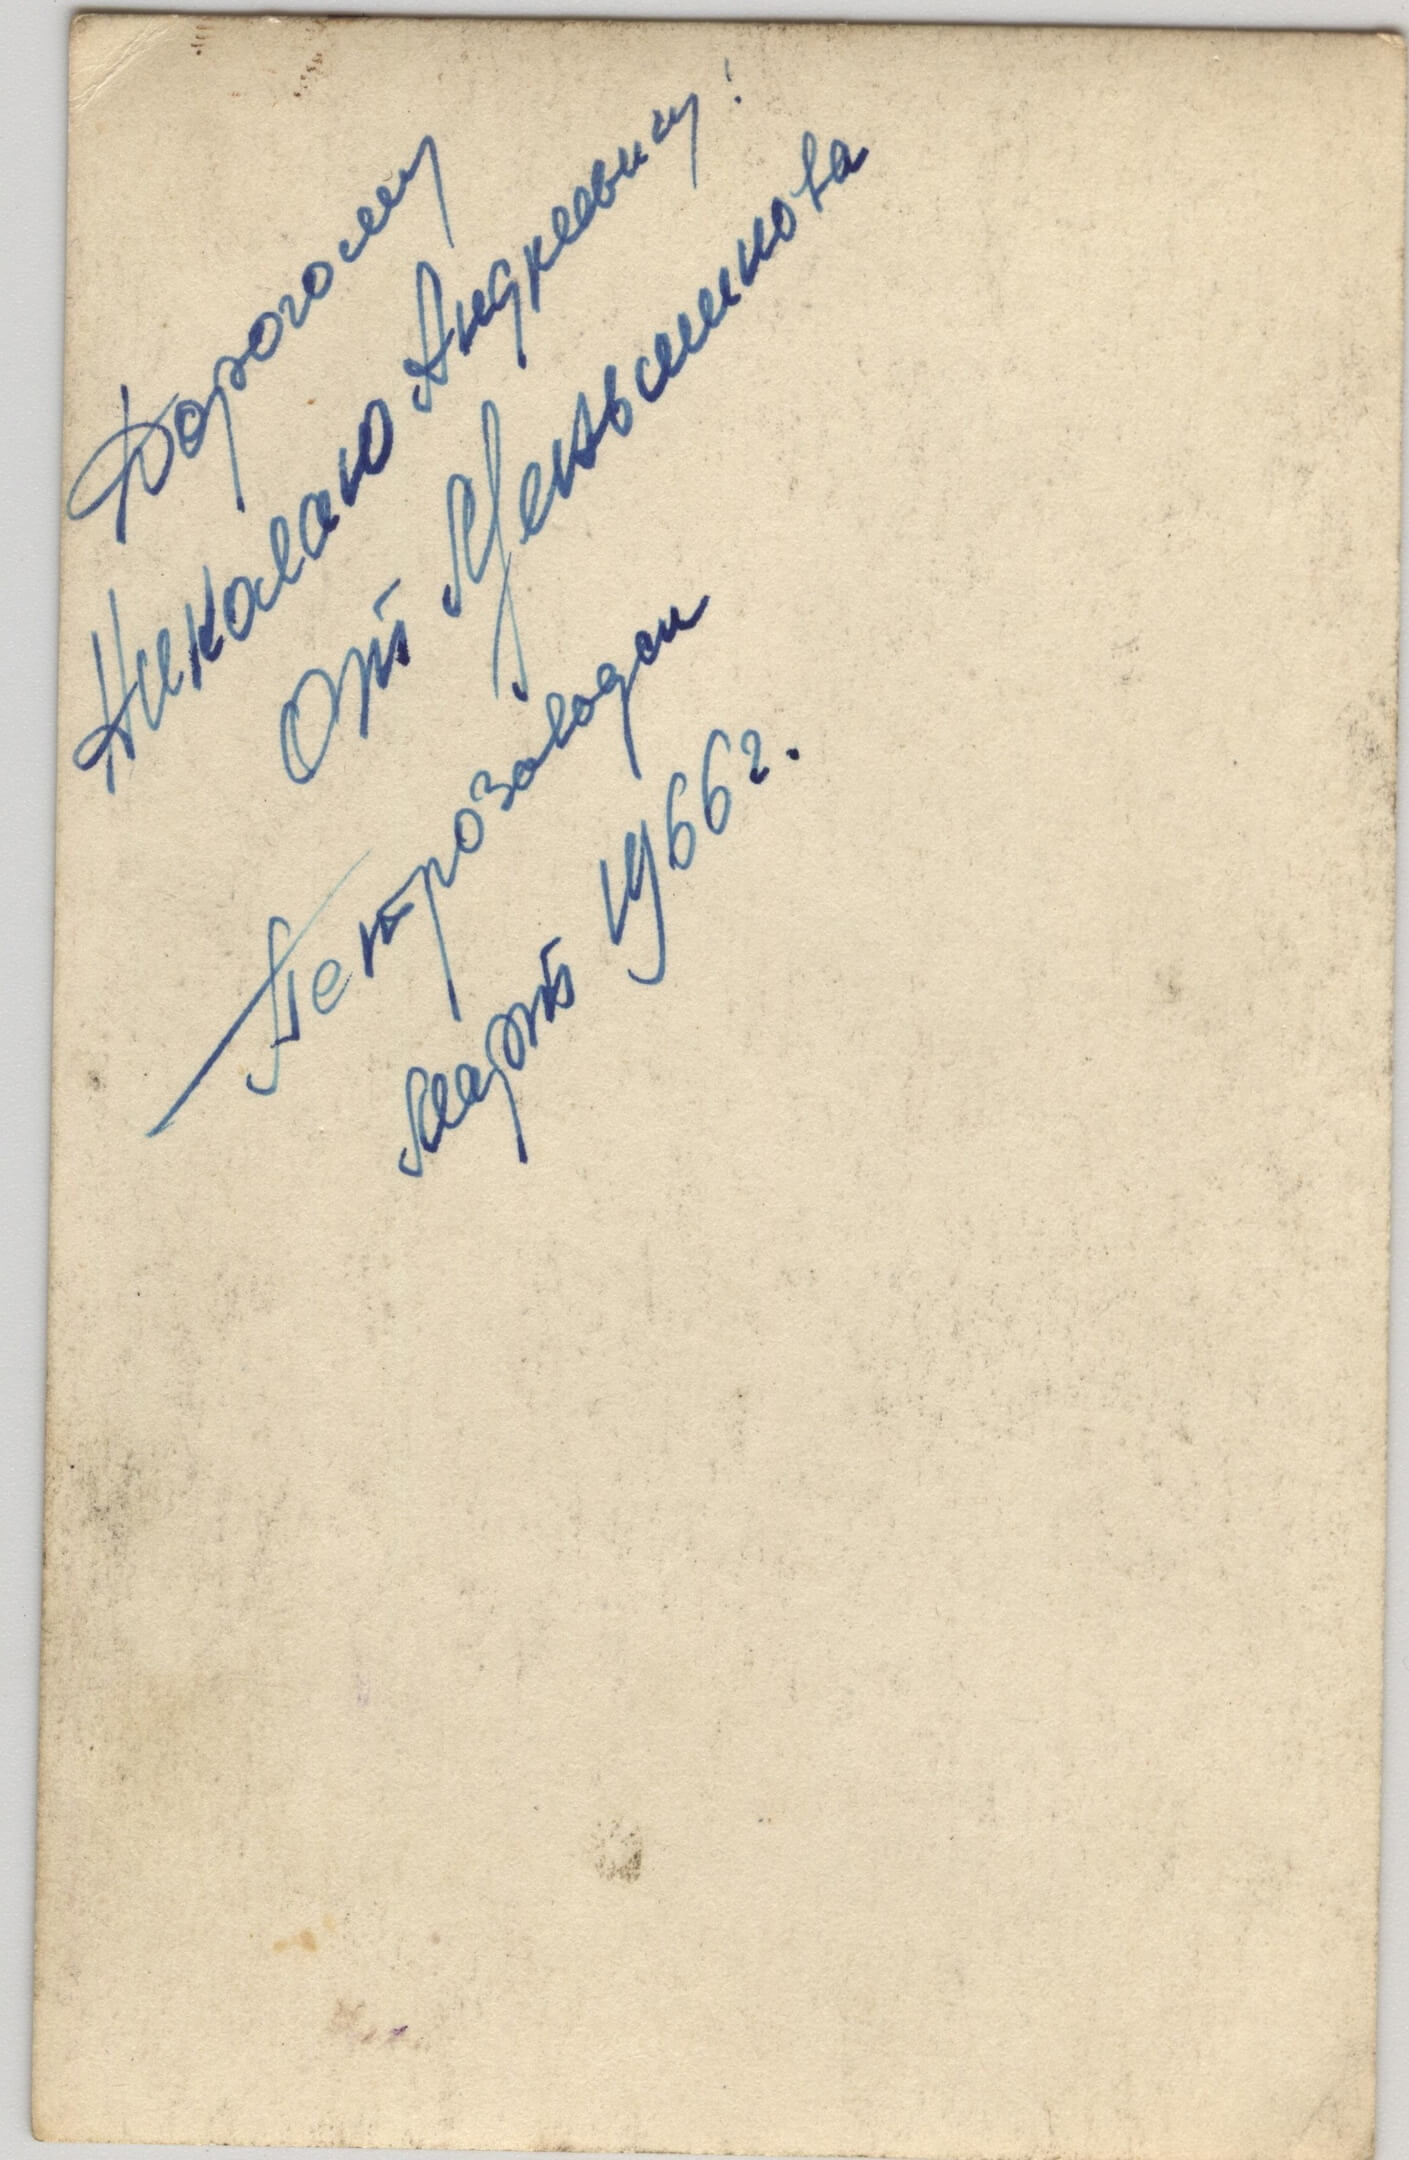 Дорогому
Николаю Андреевичу!
от Мельникова
Петрозаводск
март 1966 г.